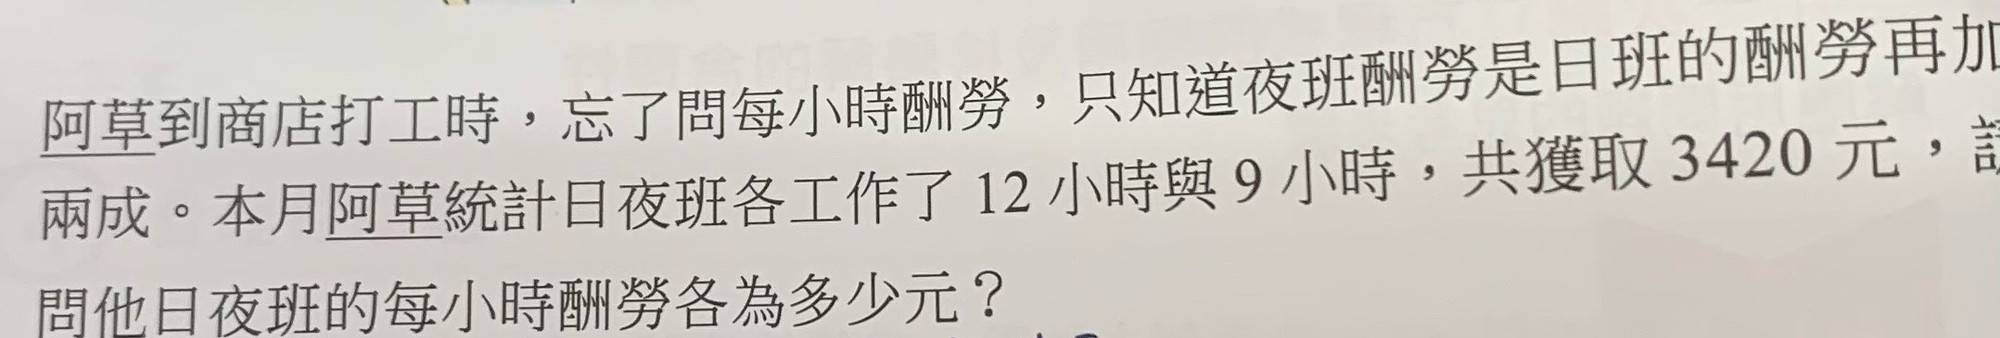 阿草到商店打工時，忘了問每小時酬勞，只知道夜班酬勞是日班的酬勞再加
兩成。本月阿草統計日夜班各工作了 12 小時與 9 小時，共獲取 3420 元，
問他日夜班的每小時酬勞各為多少元？